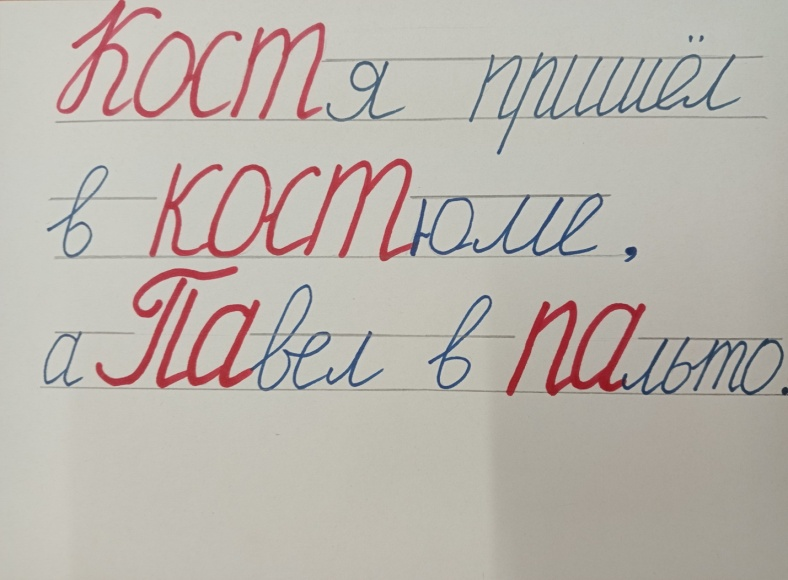 Костя пришёл
в костюме,
а Павел в пальто.